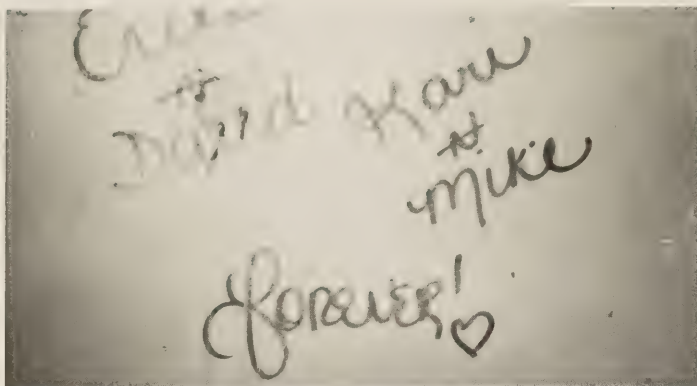 &
David
Kari
&
Mike
forever!♡